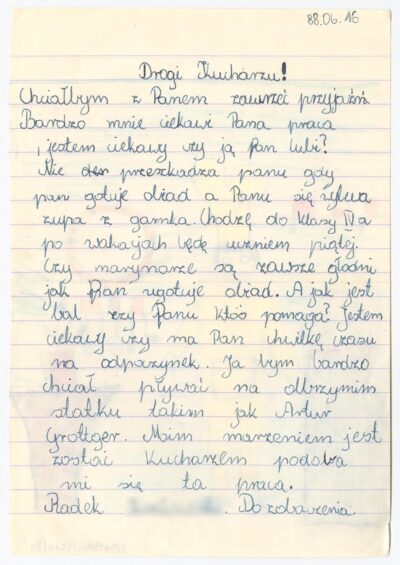 88.06.16
Drogi Kucharzu!
Chciałbym z Panem zawrzeć przyjaźń.
Bardzo mnie ciekawi Pana praca
, jestem ciekawy czy ją Pan lubi?
Nie przeszkadza panu gdy
pan gotuje obiad a Panu się wylewa
zupa z garnka. Chodzę do klasy IV a
po wakacjach będę uczniem piątej.
Czy marynarze są zawsze głodni
jak Pan ugotuje obiad. A jak jest
bal czy Panu ktoś pomaga? Jestem
ciekawy czy ma Pan chwilkę czasu
na odpoczynek. Ja bym bardzo
chciał pływać na olbrzymim
statku takim jak Artur
Grottger. Moim marzeniem jest
zostać Kucharzem podoba
mi się ta praca.
Radek . Do zobaczenia.